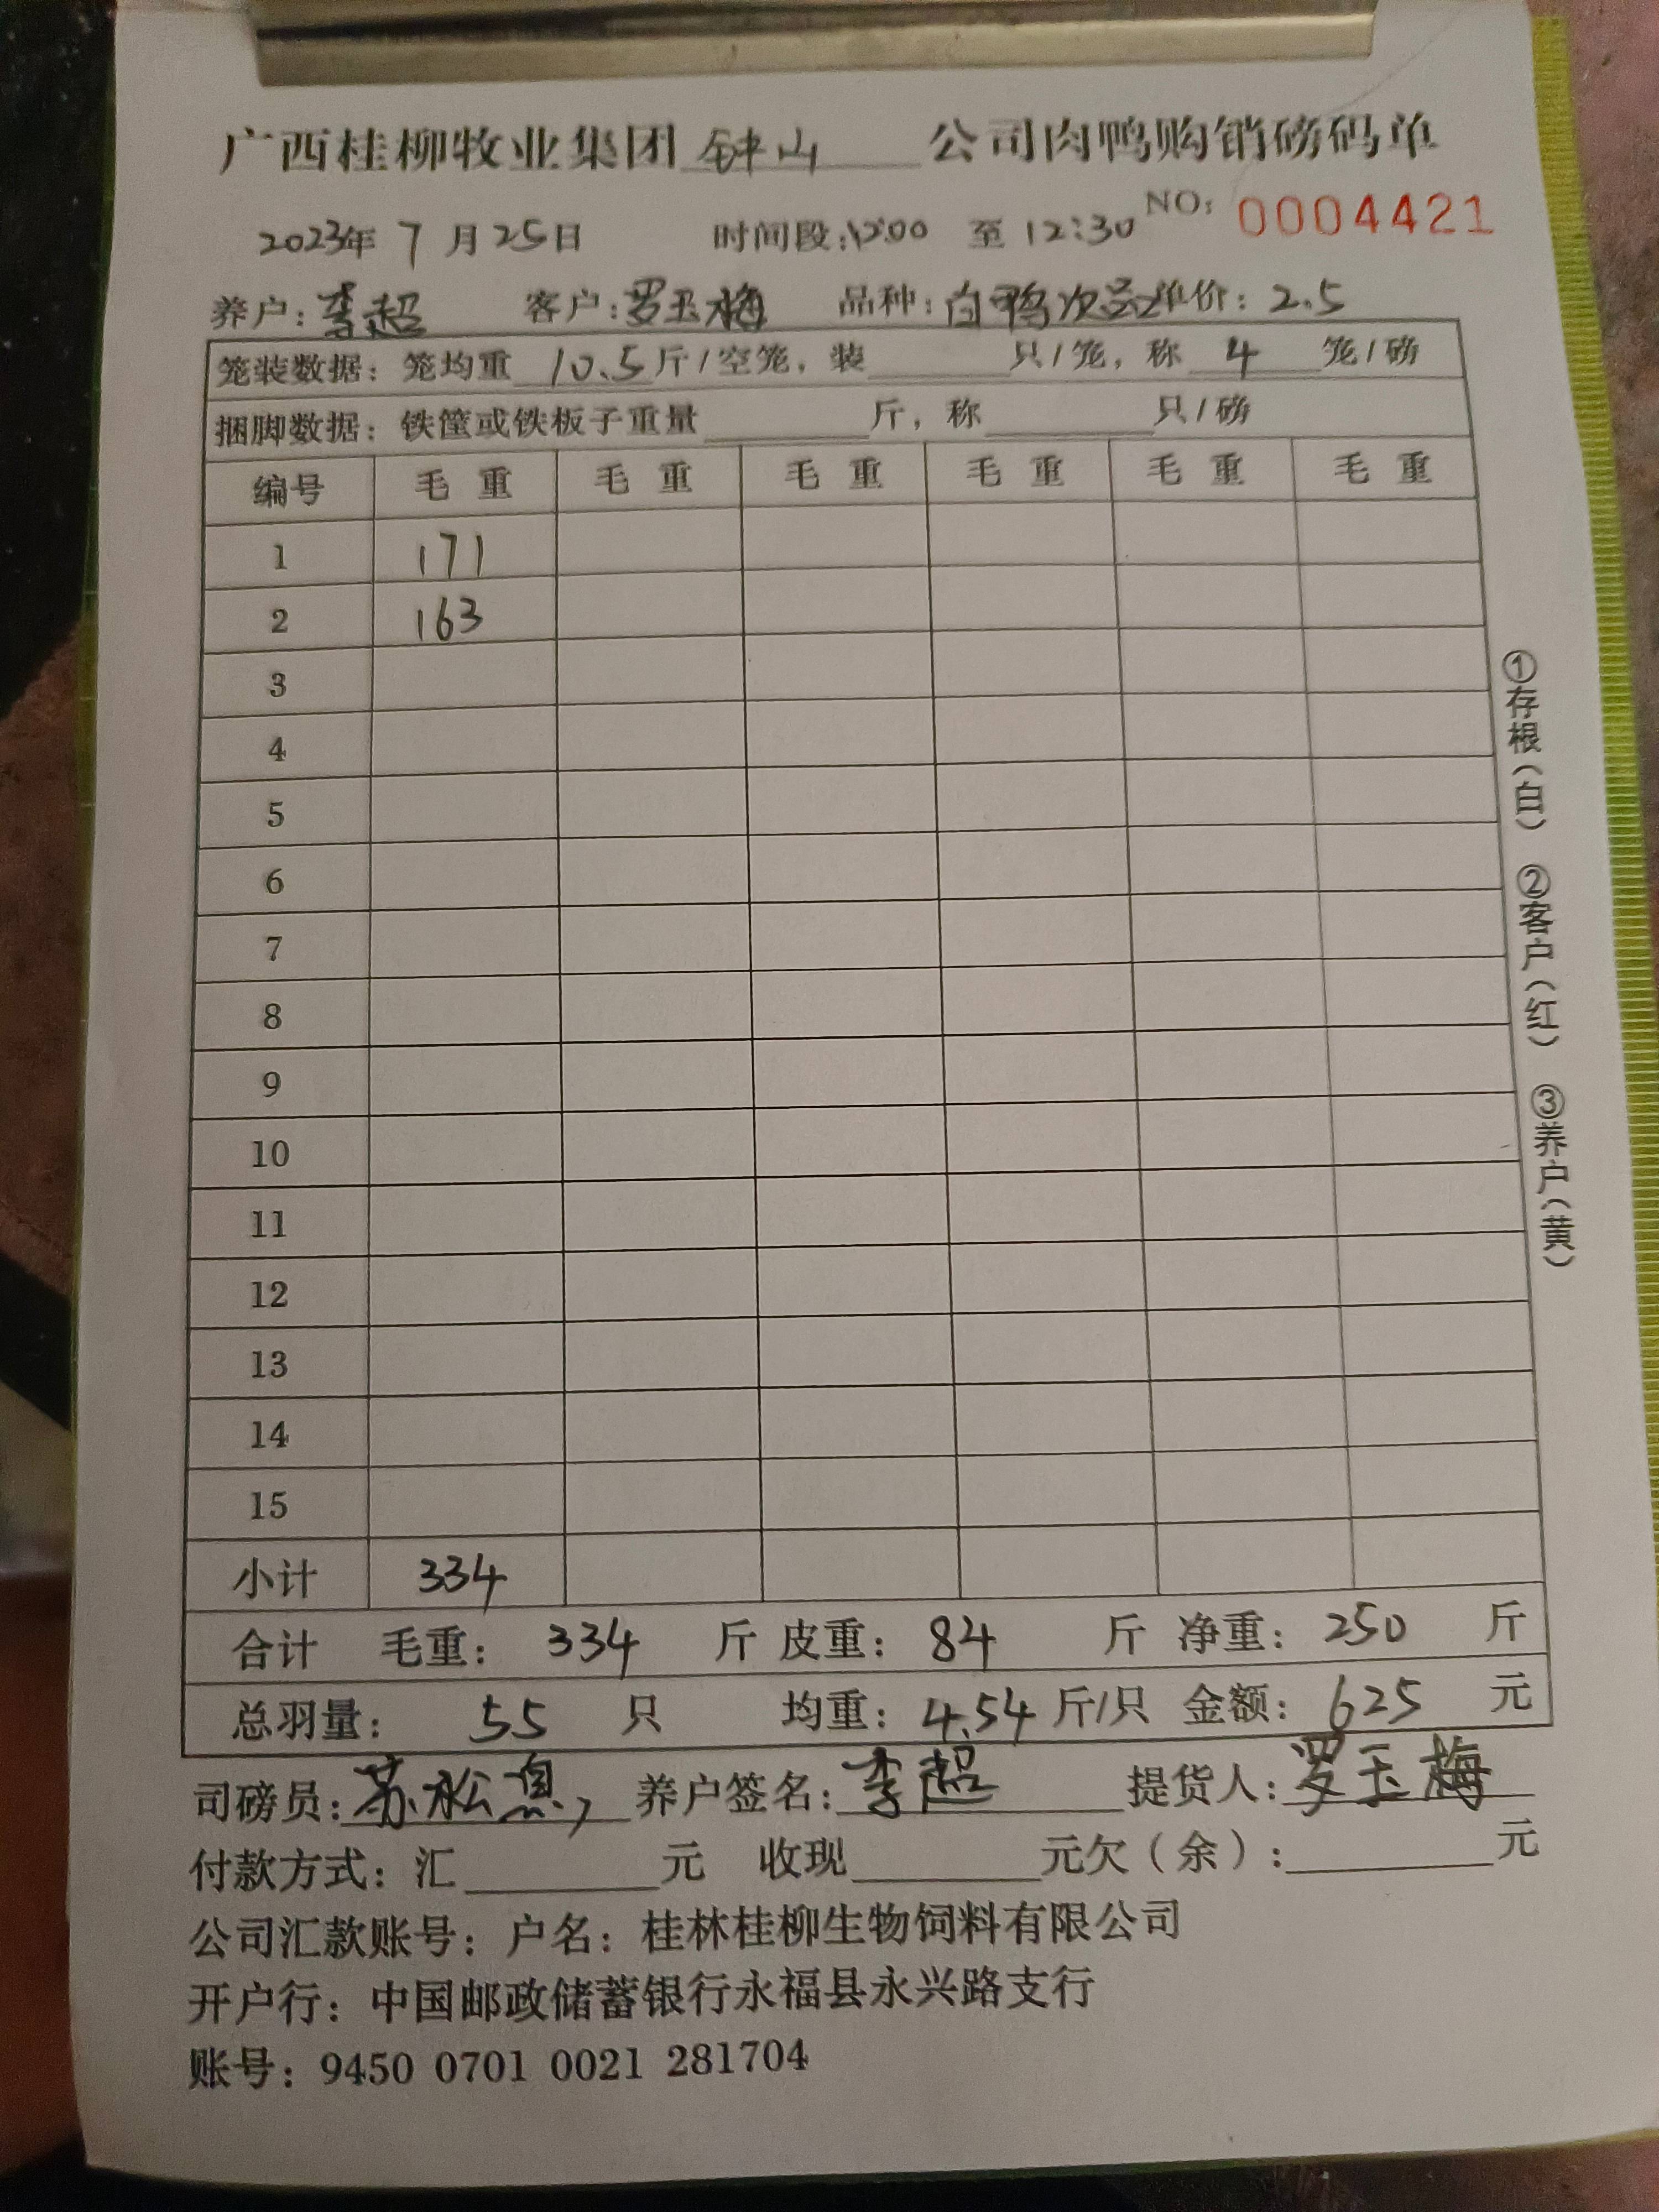 广西桂柳牧业集团 钟山 公司肉鸭购销磅码单
NO: 0004421
2023年 7 月 25日 时间段:12:00 至 12:30
养户: 李超 客户: 罗玉梅 品种: 白鸭次品 单价: 2.5
笼装数据: 笼均重 10.5 斤/空笼, 装____只/笼, 称 4 笼/磅
捆脚数据: 铁筐或铁板子重量____斤, 称____只/磅
编号 毛 重 毛 重 毛 重 毛 重 毛 重 毛 重
1 171
2 163
3
4
5
6
7
8
9
10
11
12
13
14
15
小计 334
合计 毛重: 334 斤 皮重: 84 斤 净重: 250 斤
总羽量: 55 只 均重: 4.54 斤/只 金额: 625 元
司磅员: 苏松 养户签名: 李超 提货人: 罗玉梅
付款方式: 汇____元 收现____元欠(余):____元
公司汇款账号: 户名: 桂林桂柳生物饲料有限公司
开户行: 中国邮政储蓄银行永福县永兴路支行
账号: 9450 0701 0021 281704
①存根(白) ②客户(红) ③养户(黄)